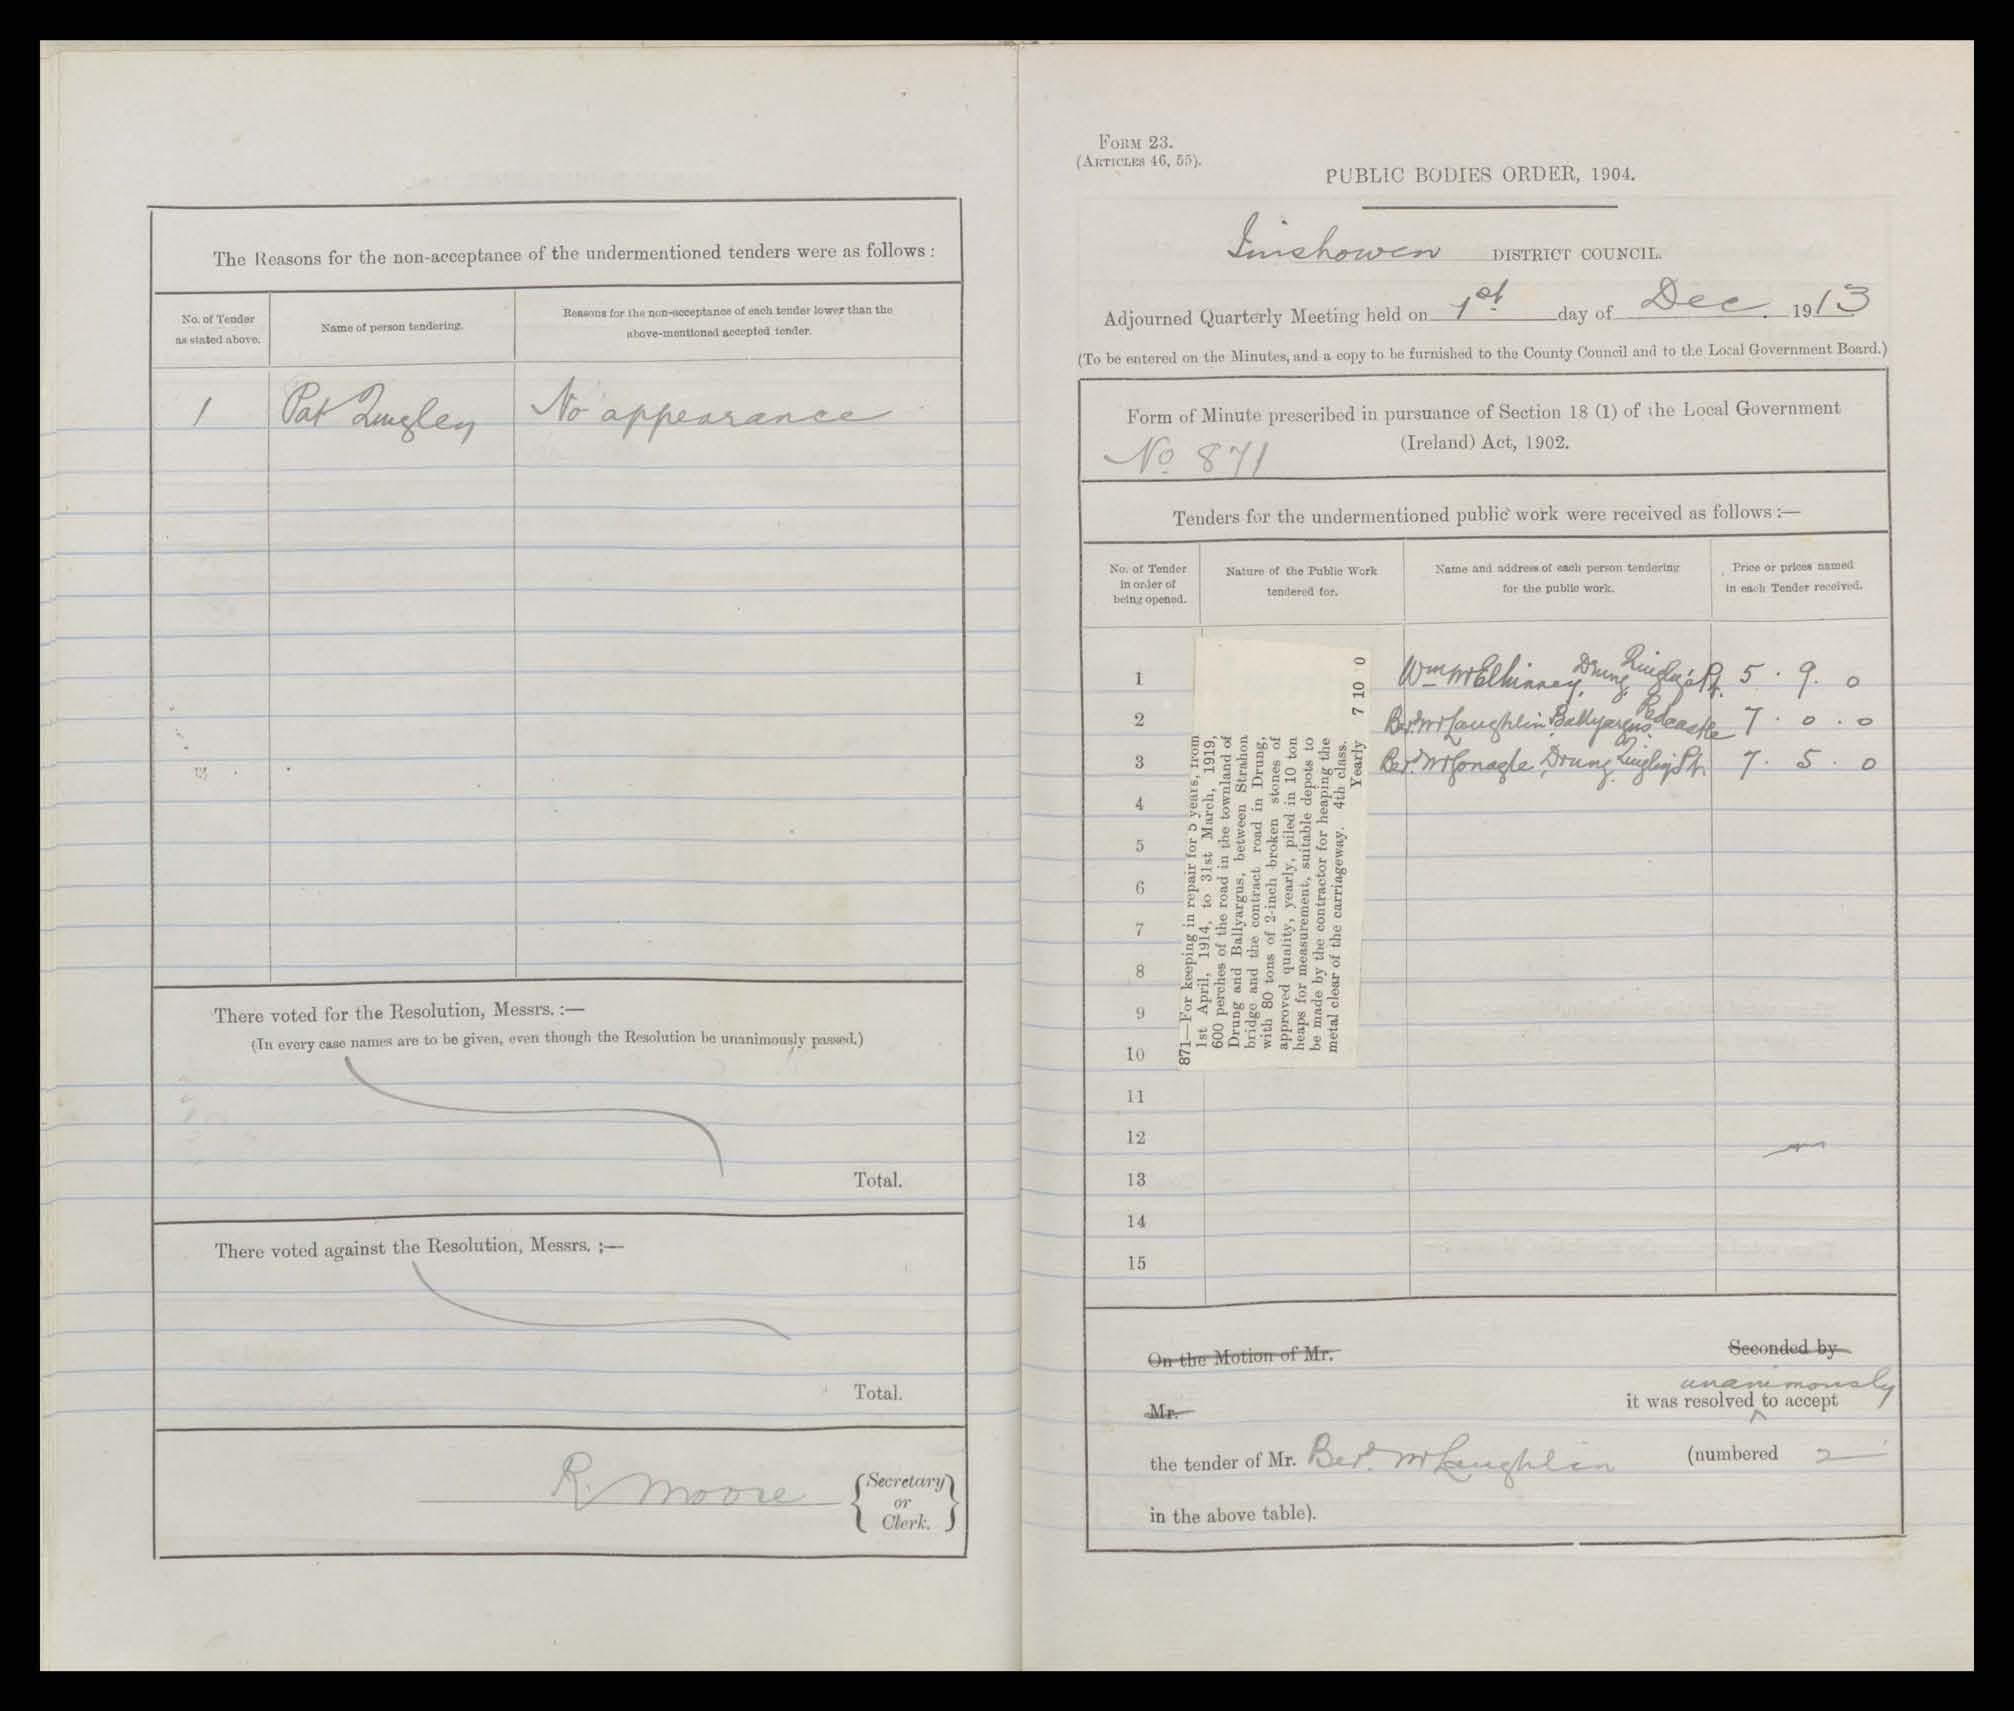 The Reasons for the non-acceptance of the undermentioned tenders were as follows :
No. of Tender
as stated above.
Name of person tendering.
Reasons for the non-acceptance of each tender lower than the
above-mentioned accepted tender.
1 Pat Quigley No appearance
There voted for the Resolution, Messrs. :—
(In every case names are to be given, even though the Resolution be unanimously passed.)
Total.
There voted against the Resolution, Messrs. :—
Total.
R. Moore
{Secretary
or
Clerk.}
FORM 23.
(ARTICLES 46, 55).
PUBLIC BODIES ORDER, 1904.
Inishowen DISTRICT COUNCIL.
Adjourned Quarterly Meeting held on 1st day of Dec. 1913
(To be entered on the Minutes, and a copy to be furnished to the County Council and to the Local Government Board.)
Form of Minute prescribed in pursuance of Section 18 (1) of the Local Government
(Ireland) Act, 1902.
No. 871
Tenders for the undermentioned public work were received as follows :—
No. of Tender
in order of
being opened.
Nature of the Public Work
tendered for.
Name and address of each person tendering
for the public work.
Price or prices named
in each Tender received.
871—For keeping in repair for 5 years, from
1st April, 1914, to 31st March, 1919,
600 perches of the road in the townland of
Drung and Ballyargus, between Strahon
bridge and the contract road in Drung,
with 80 tons of 2-inch broken stones of
approved quality, yearly, piled in 10 ton
heaps for measurement, suitable depots to
be made by the contractor for heaping the
metal clear of the carriageway. 4th class.
Yearly 7 10 0
1 Wm McElhinney, Drung, Quigley's Pt. 5 . 9 . 0
2 Berd. McLaughlin, Ballyargus, Redcastle 7 . 0 . 0
3 Berd. McGonagle, Drung, Quigley's Pt. 7 . 5 . 0
4
5
6
7
8
9
10
11
12
13
14
15
On the Motion of Mr. Seconded by
unanimously
Mr. it was resolved ^ to accept
the tender of Mr. Berd. McLaughlin (numbered 2
in the above table).